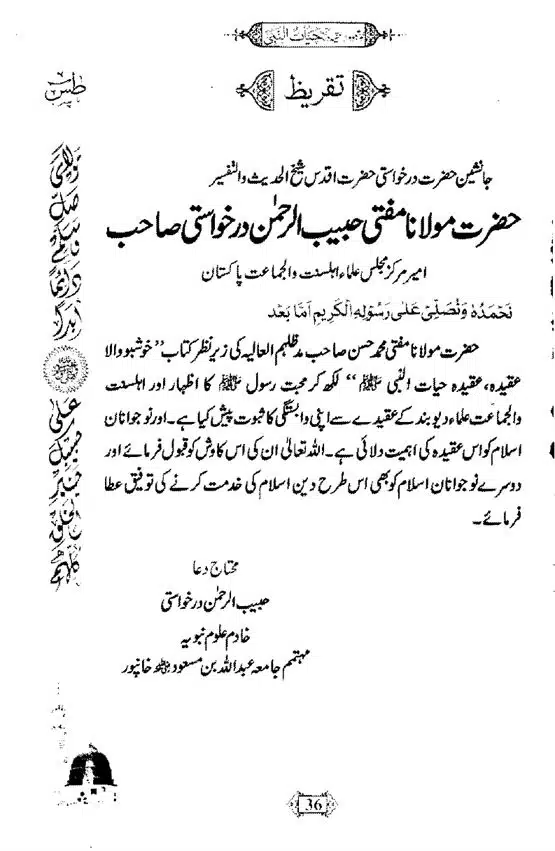 حیات النبی
تقریظ
جانشین حضرت درخواستی حضرت اقدس شیخ الحدیث والتفسیر
حضرت مولانا مفتی حبیب الرحمٰن درخواستی صاحب
امیر مرکز مجلس علماء اہلسنت والجماعت پاکستان
نَحْمَدُهٗ وَنُصَلِّیْ عَلٰی رَسُوْلِهِ الْکَرِیْمِ اَمَّا بَعْد
حضرت مولانا مفتی محمد حسن صاحب مدظلہم العالیہ کی زیرِ نظر کتاب "خوشبو والا
عقیدہ، عقیدہ حیات النبی ﷺ" لکھ کر محبت رسول ﷺ کا اظہار اور اہلسنت
والجماعت علماء دیوبند کے عقیدے سے اپنی وابستگی کا ثبوت پیش کیا ہے۔ اور نوجوانان
اسلام کو اس عقیدہ کی اہمیت دلائی ہے۔ اللہ تعالیٰ ان کی اس کاوش کو قبول فرمائے اور
دوسرے نوجوانان اسلام کو بھی اس طرح دین اسلام کی خدمت کرنے کی توفیق عطا
فرمائے۔
محتاج دعا
حبیب الرحمٰن درخواستی
خادم علوم نبویہ
مہتمم جامعہ عبداللہ بن مسعودؓ خانپور
مولای صل وسلم دائما ابدا
علی حبیبک خیر الخلق کلھم
36